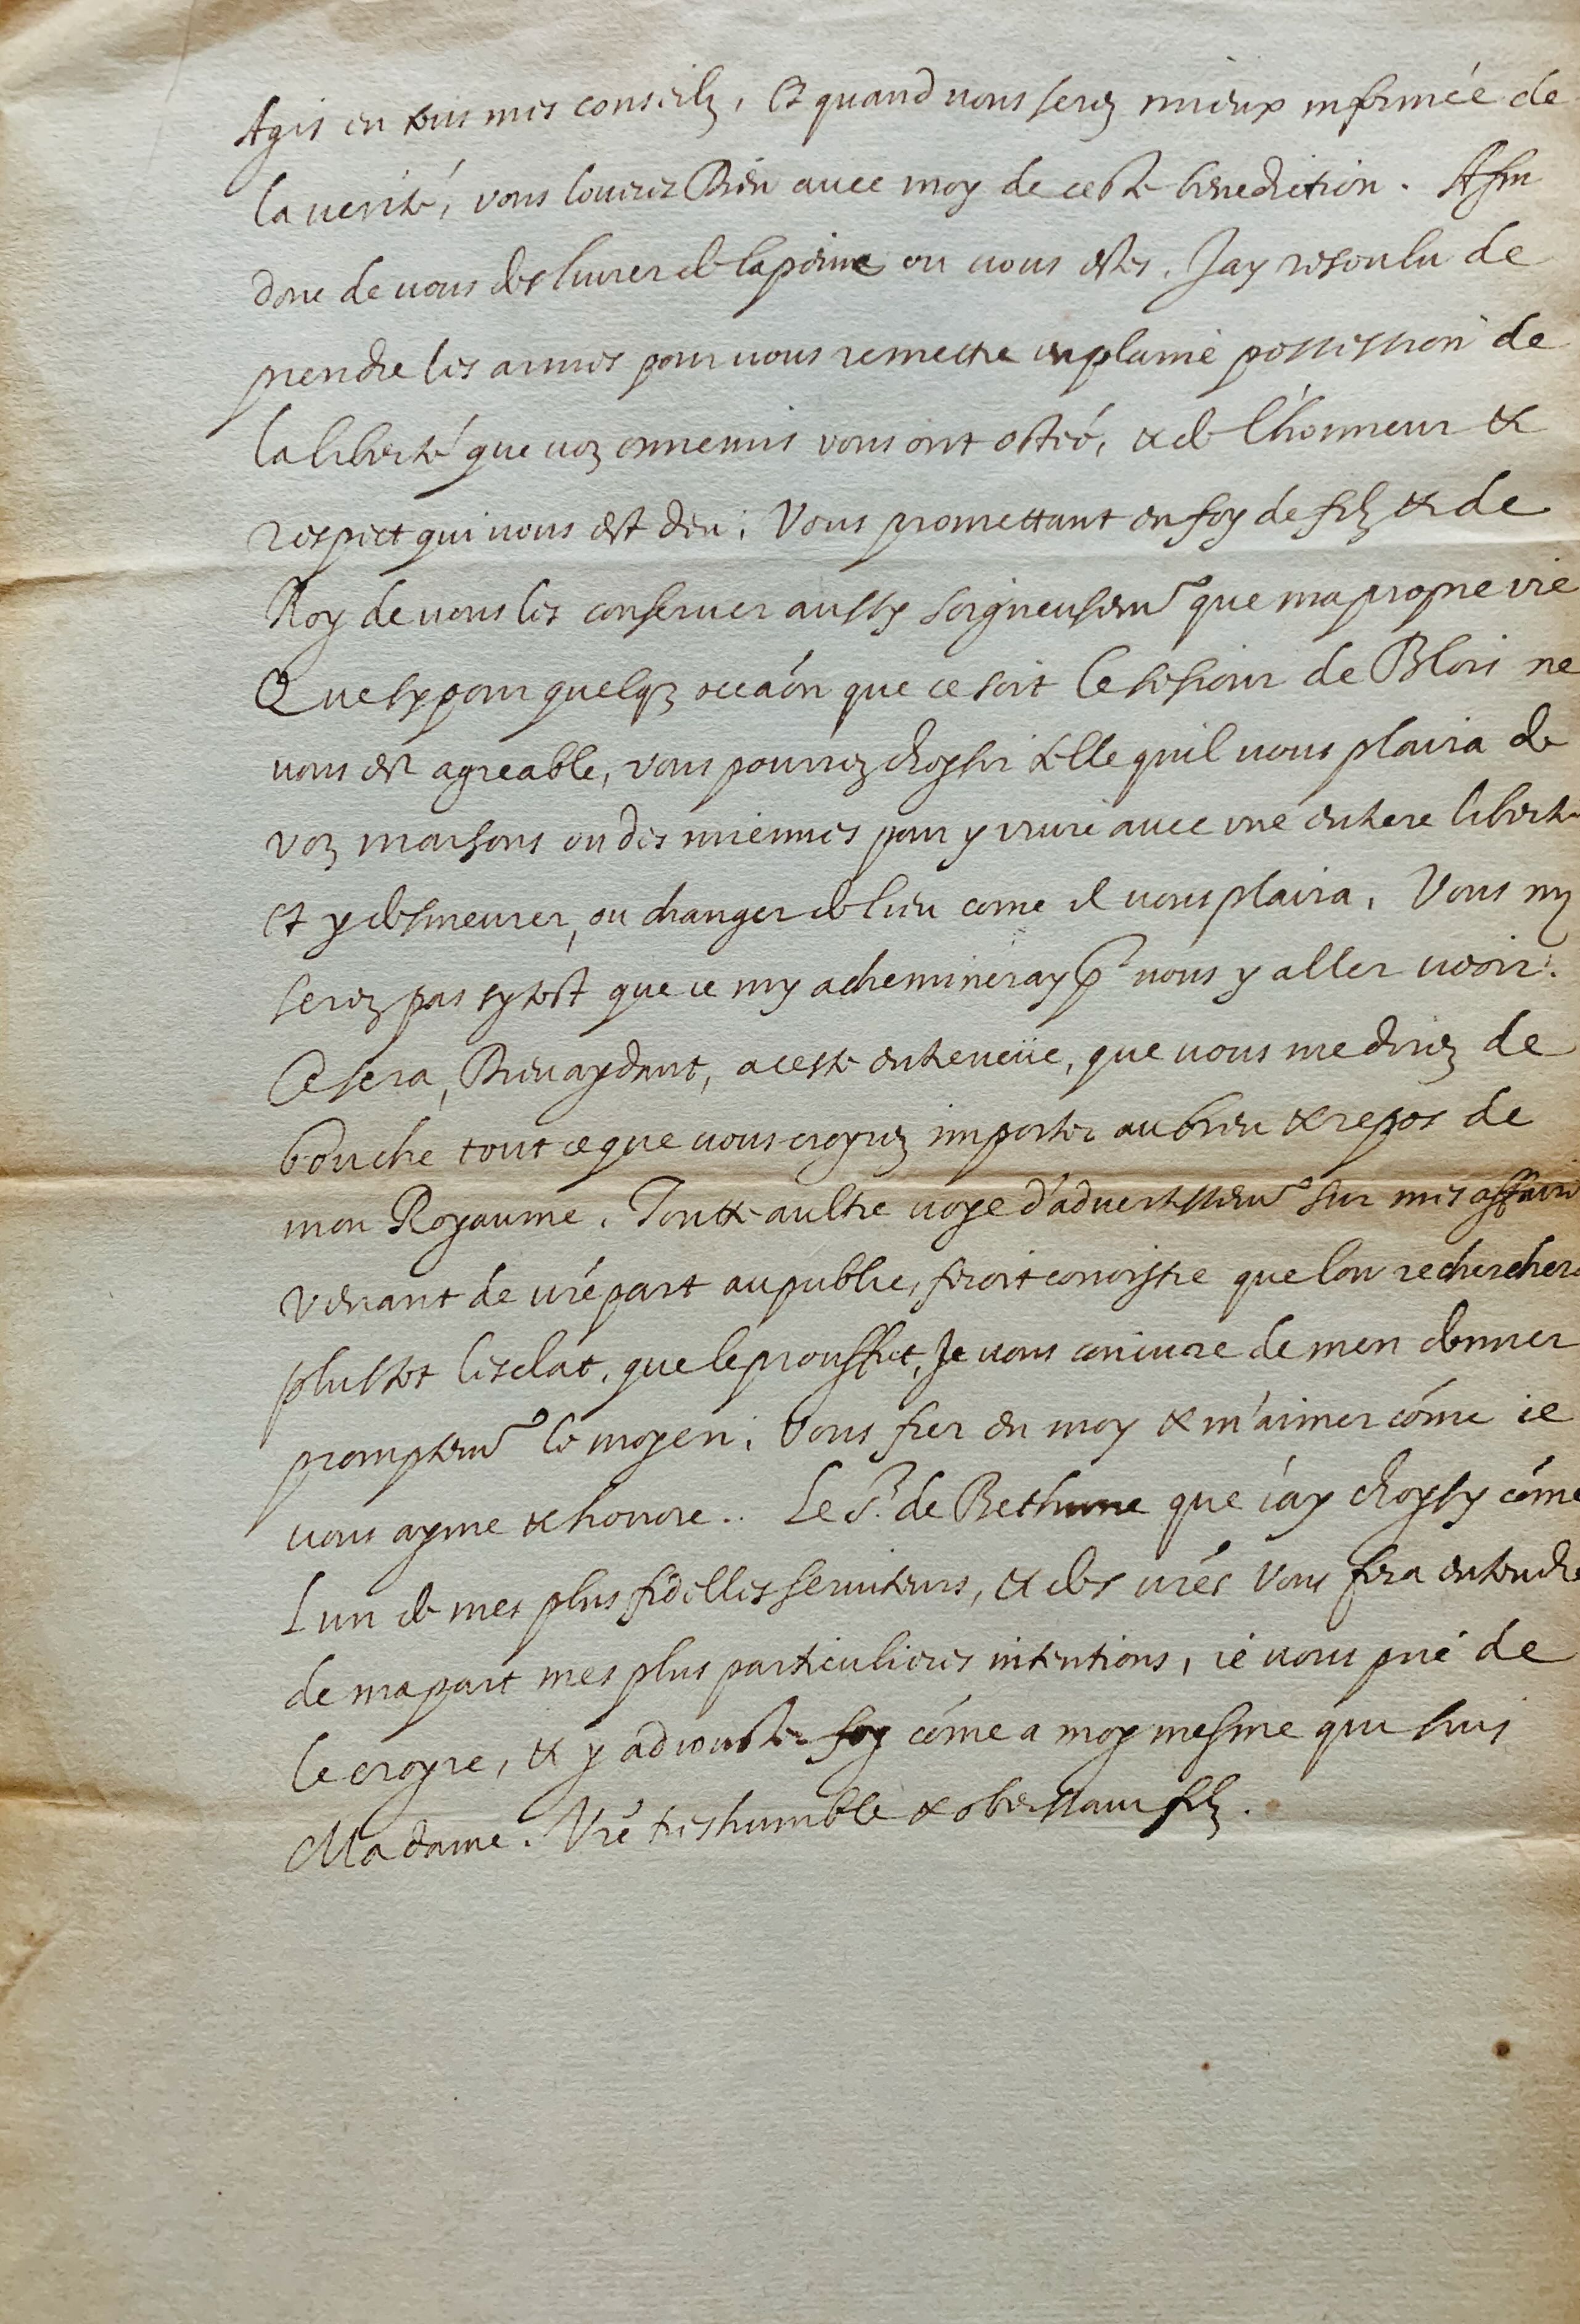 Agis en tous mes conseilz, Et quand vous serez mieux informée de
la verité, vous louerez Dieu avec moy de ceste benediction. Afin
donc de vous deslivrer de la peine ou vous estes, Jay resoulu de
prendre les armes pour vous remettre en plaine possession de
la liberté que voz ennemis vous ont osteé, & de l'honneur &
respect qui vous est deu; Vous promettant en foy de filz & de
Roy de vous les conserver aussy soigneusem^t que ma propre vie
Que sy pour quelq3 occaõn que ce soit le sejour de Blois ne
vous est agreable, vous pourrez choysir telle quil vous plaira de
voz maisons ou des miennes pour y vivre avec une entiere liberté
Et y desmeurer, ou changer de lieu come il vous plaira, Vous ny
serez pas sy tost que ie my achemineray p^r vous y aller veoir.
Ce sera, Dieu aydant, a ceste entreveüe, que vous me direz de
bouche tout ce que vous croyrez importer au bien & repos de
mon Royaume. Toutte aultre voye d'advertissem^t sur mes affaires
venant de vré part au public, feroit conoistre que lon recherchero
plustost lesclat, que le prouffict, Je vous coniure de men donner
promptem^t le moyen, Vous fier en moy & m'aimer cóme ie
vous ayme & honore.. Le S^r. de Bethune que i'ay choysy cóme
Lun de mes plus fidelles serviteurs, & des vrés Vous fera entendre
de ma part mes plus particulieres intentions, ie vous prie de
le croyre, & y adiouster foy cóme a moy mesme qui suis
Madame. Vré tres humble & obeissant filz.